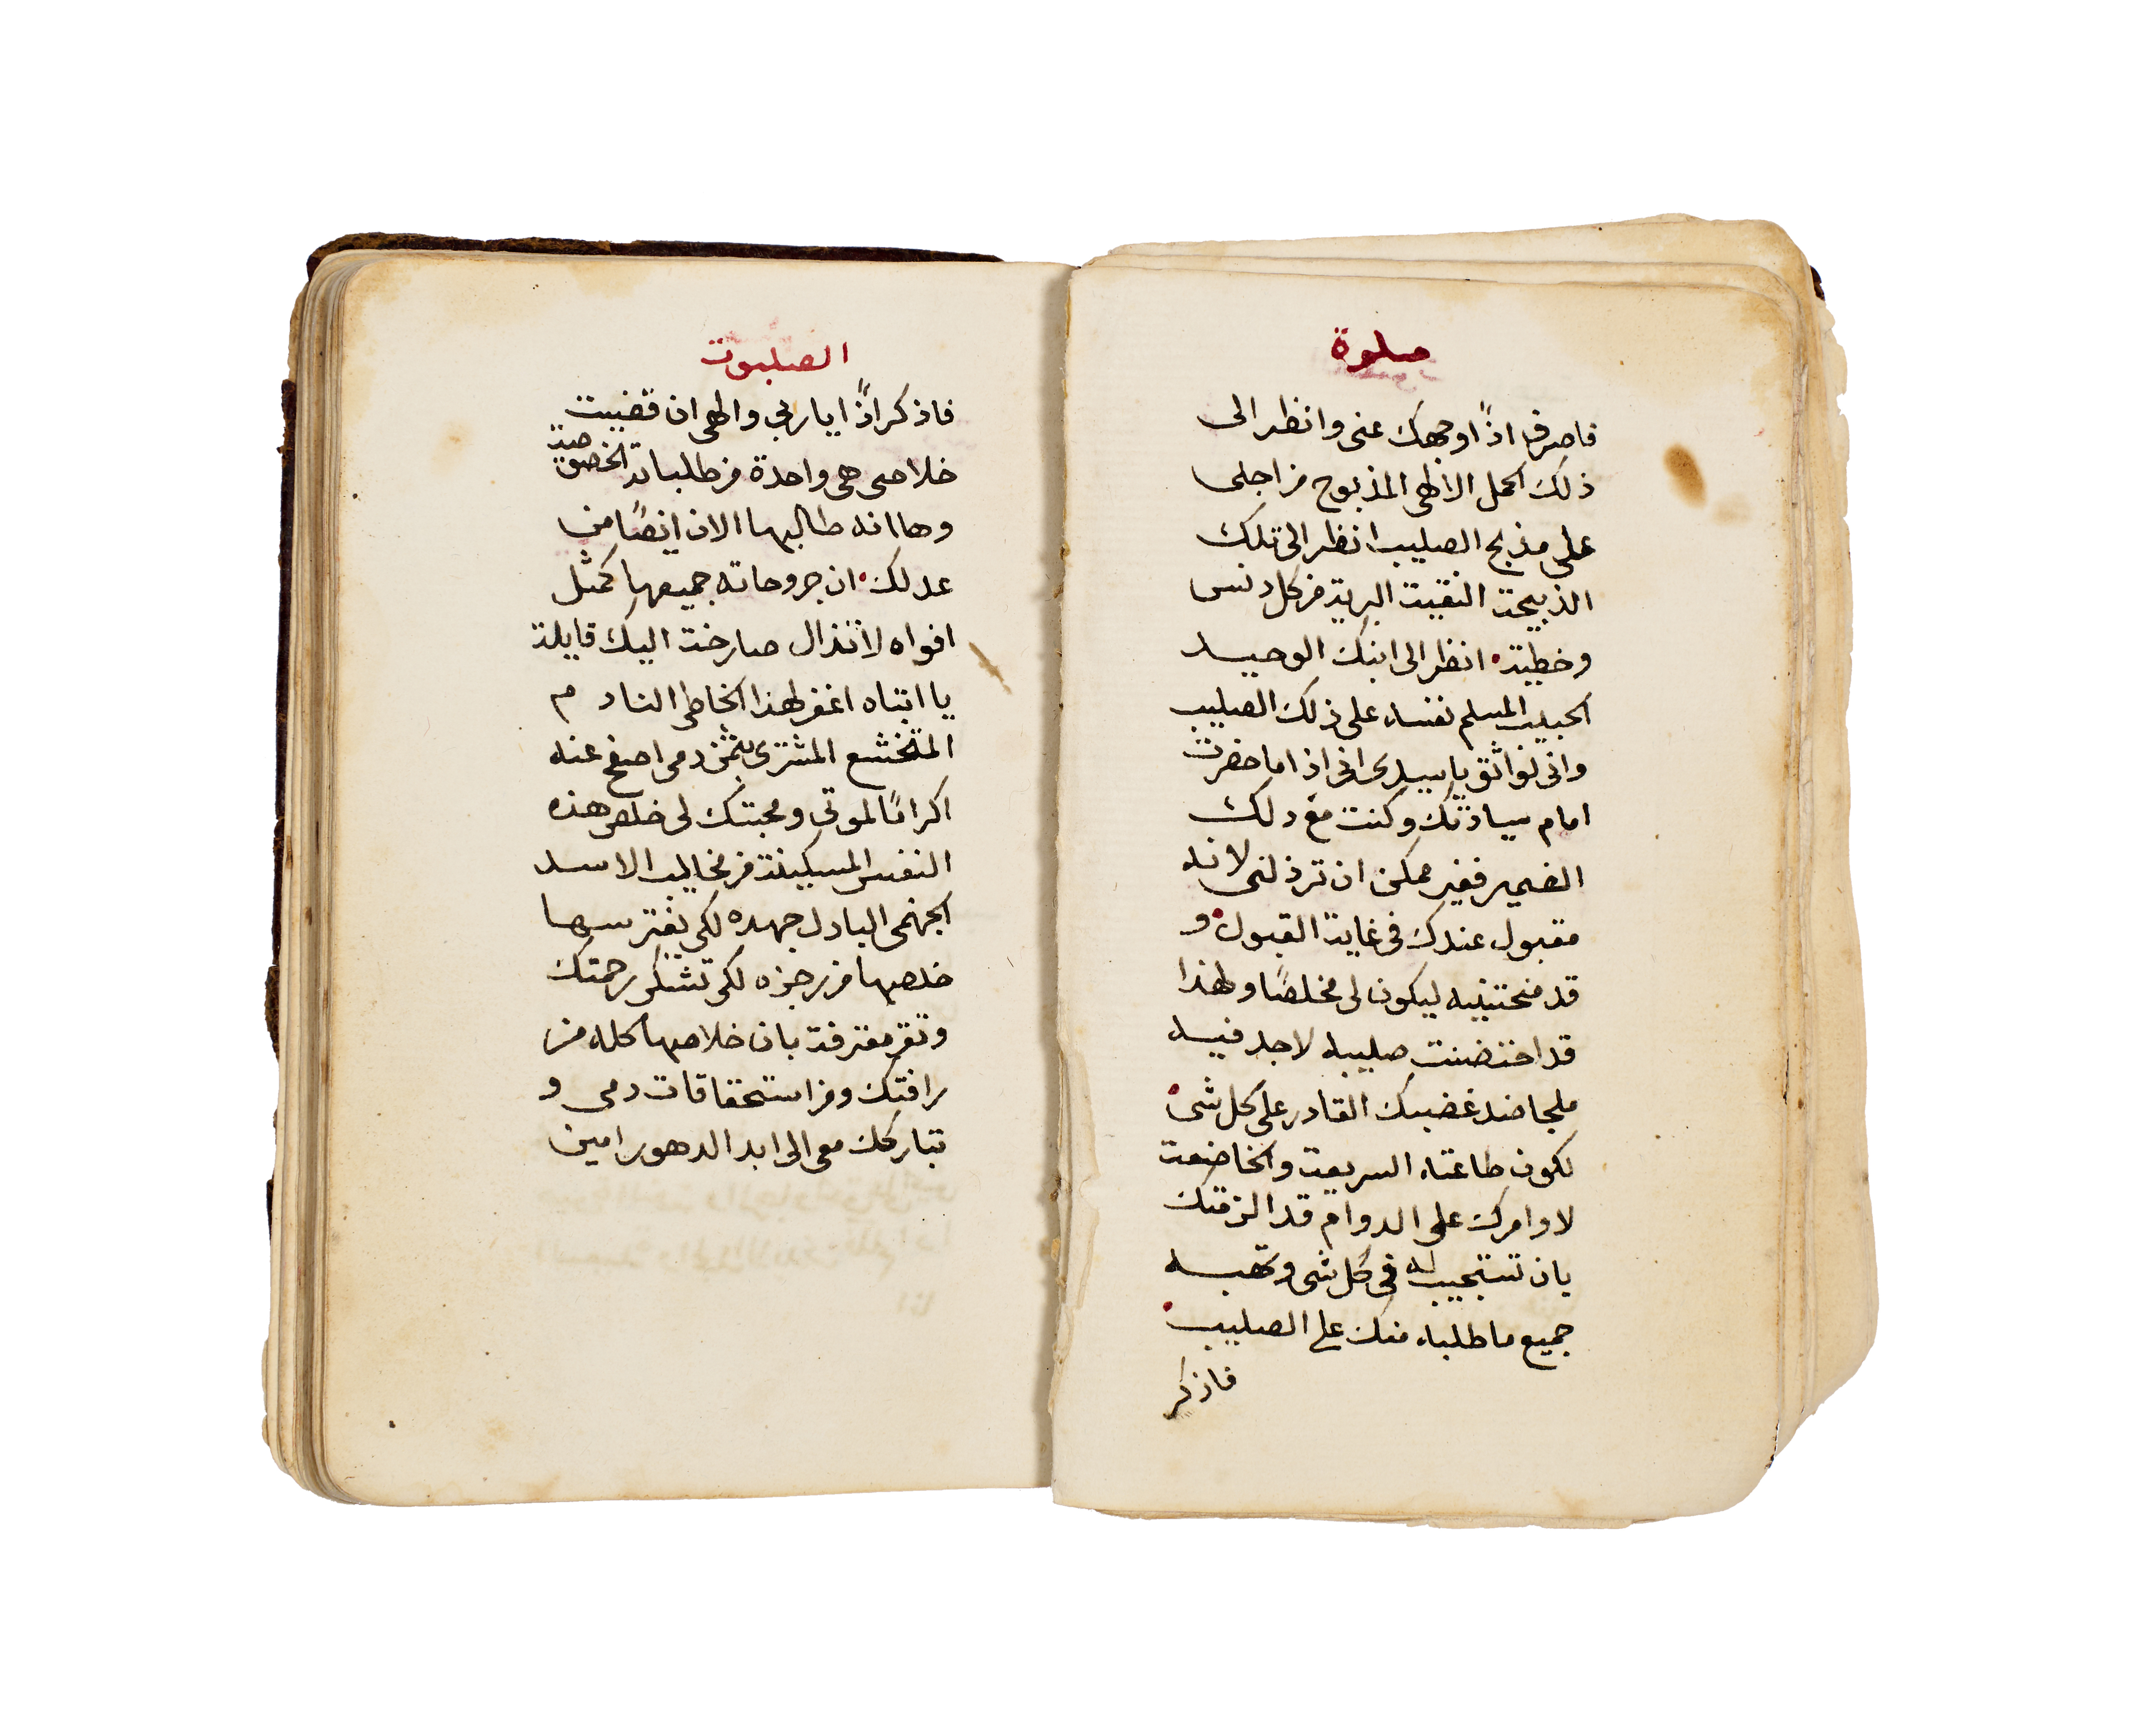 صلوة
فاصرف اذًا وجهك عنى وانظر الى
ذلك الحمل الالهى المذبوح من اجلى
على مذبح الصليب انظر الى تلك
الذبيحة النقية البرية من كل دنس
وخطية • انظر الى ابنك الوحيد
الحبيب المسلم نفسه على ذلك الصليب
وانى لواثق يا سيدى انى اذا ما حضرت
امام سيادتك وكنت مع ذلك
الضمير فغير ممكن ان ترذلنى لانه
مقبول عندك فى غاية القبول • و
قد منحتنيه ليكون لى مخلصًا ولهذا
قد اختضنت صليبه لاجد فيه
ملجا ضد غضبك القادر على كل شى •
لكون طاعته السريعة والخاضعة
لاوامرك على الدوام قد الزمتك
بان تستجيب له فى كل شى وتهبه
جميع ما طلبه منك على الصليب •
فاذكر
الصلبوت
فاذكر اذًا يا ربي والهى ان قضيت
خلاصى هى واحدة من طلباته الخصوصية
وها انه طالبها الان ايضًا من
عدلك • ان جروحاته جميعها كمثل
افواه لا تزال صارخة اليك قايلة
يا ابتاه اغفر لهذا الخاطى النادم
المتخشع المشترى بثمن دمى اصفح عنه
اكرامًا لموتى ومحبتك لى خلص هذه
النفس المسكينة من مخاليب الاسد
الجهنمى البادل جهده لكى يفترسها
خلصها من رجزه لكى تشكر رحمتك
وتقر معترفة بان خلاصها كله من
رافتك ومن استحقاقات دمى و
تباركك معى الى ابد الدهور امين